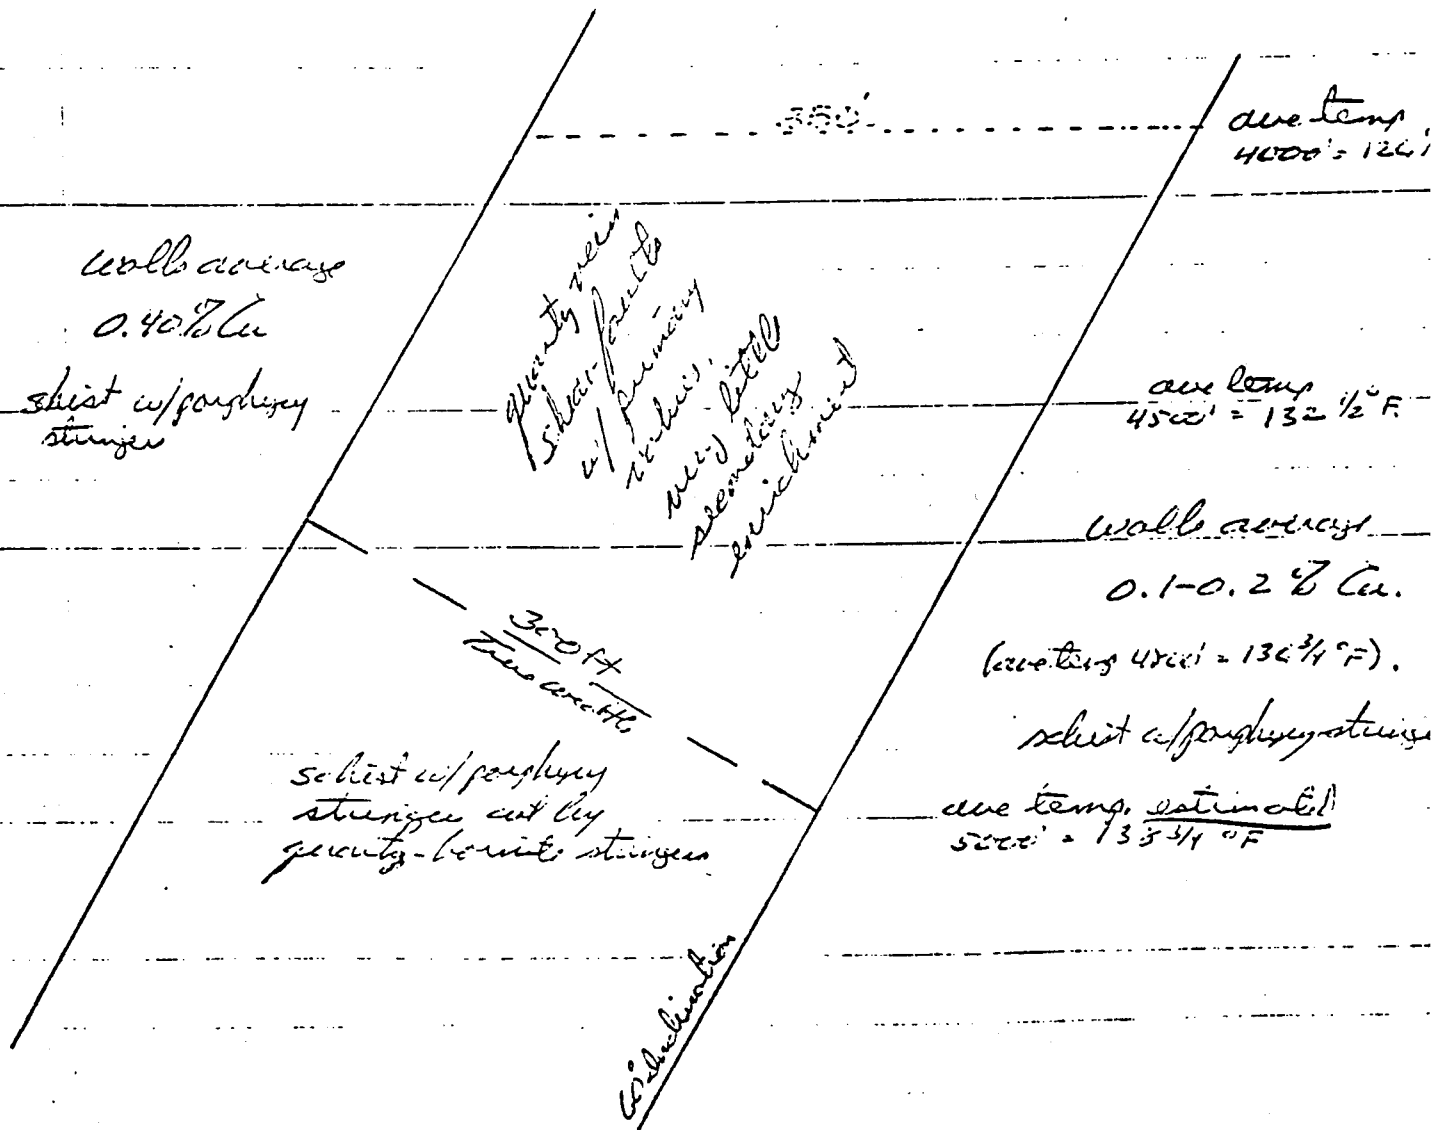 350'
ave temp
4000' =
walls average
0.40% Cu
shist w/porphyry
stringer
quartz vein
shear-faults
w/ primary
very little
secondary
enrichment
ave temp
4500' = 132 1/2° F.
walls average
0.1-0.2 % Cu.
(ave temp 4800' = 136 3/4 °F).
schist w/porphyry
300 ft
True width
schist w/ porphyry
stringer cut by
quartz-bornite stringers
ave temp. estimated
5000' = 138 3/4 °F
inclination